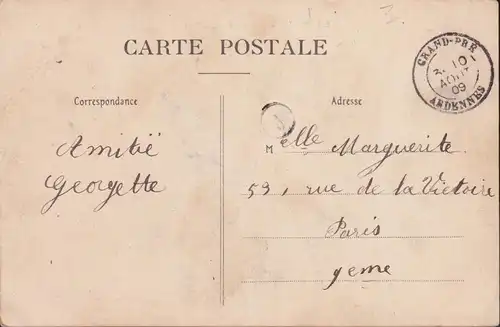 CARTE POSTALE
GRAND-PRÉ
10
AOUT
09
ARDENNES
Correspondance
Adresse
Amitié
Georgette
Melle Marguerite
59, rue de la Victoire
Paris
9eme